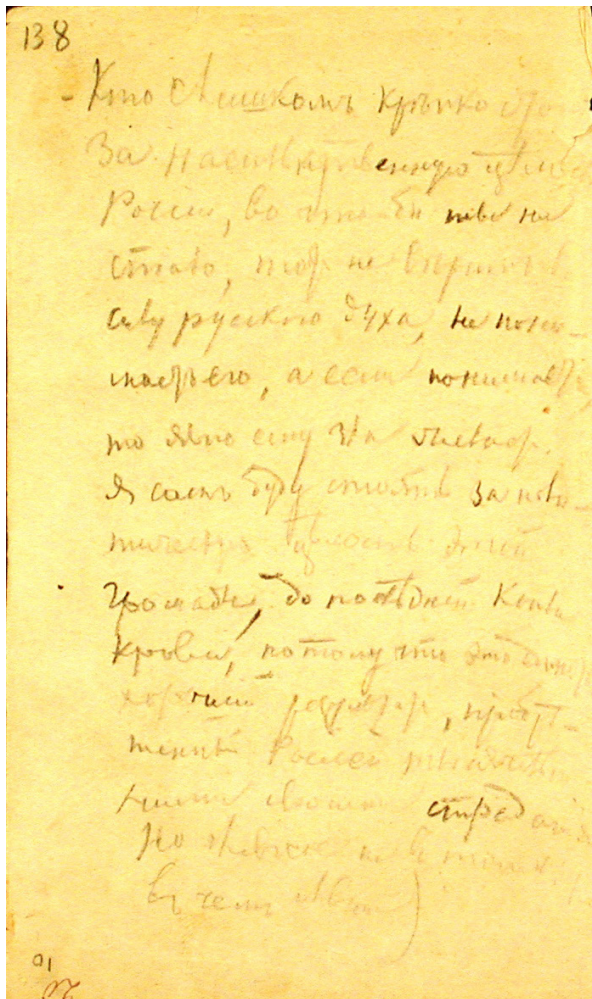 138
- Кто слишкомъ крѣпко стои
За насильственную цѣлость
Россіи, во что бы тѣ ни
стало, тотъ не вѣритъ въ
силу русскаго духа, не пони-
маетъ его, а если понимаетъ,
то явно ему зла желаетъ.
Я самъ буду стоять за поли-
тическую цѣлость этой
громады, до послѣдней капли
крови, потому что это единст
хорошій результатъ, пріобрѣ-
тенный Россіей тысячелѣт-
ними своими страданія
Но главное не въ томъ
въ чемъ